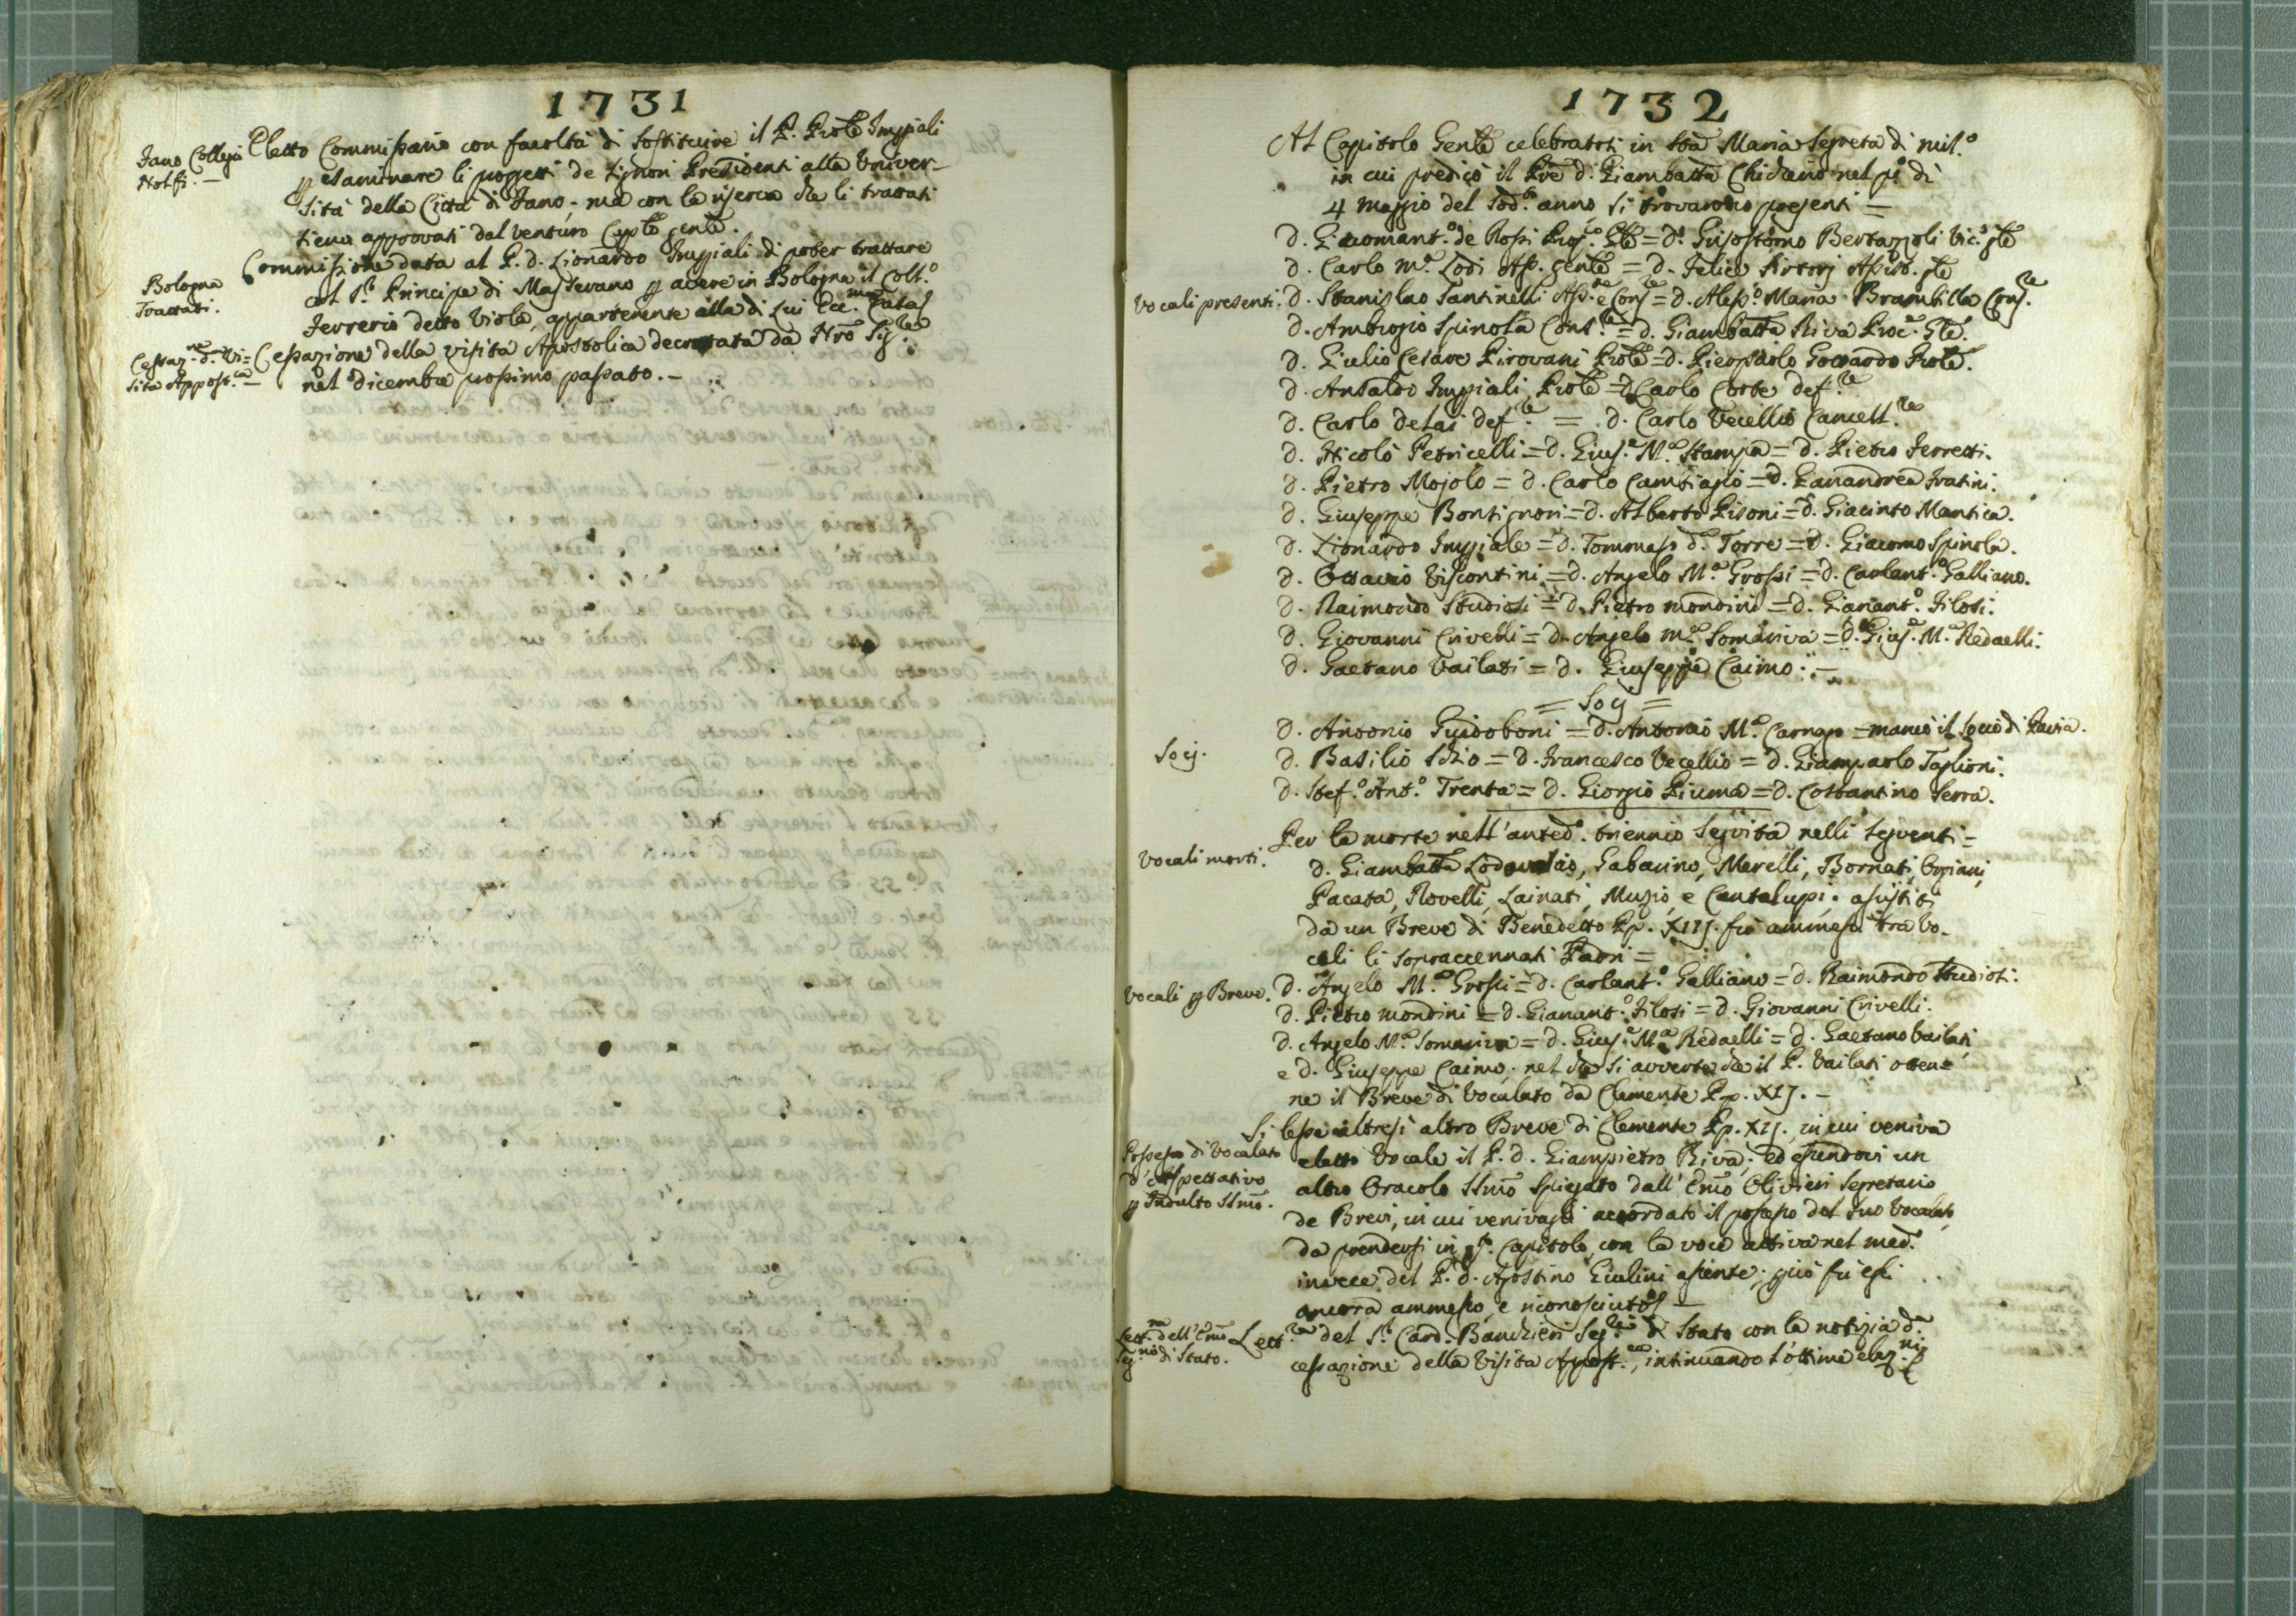 1731
Fano Collegi
Nolfi. —
Eletto Commissario con facoltà di sostituire il P. Prole Impiali
p esaminare li progetti de Signori Presidenti alla Univer-
sità della Città di Fano, ma con la riserva che li trattati
siena approvati dal venturo Caplo genle.
Bologna
Trattati.
Commissione data al P. d. Lionardo Impiali di poter trattare
col S.r Principe di Masserano p avere in Bologna il Coll.o
Ferrerio detto Viola, appartenente alla di Lui Ecc.ma Casa
Cessaz.ne d. Vi=
sita Appost.ca —
Cessazione della visita Apostolica decretata da Nro Sig.re
nel dicembre prossimo passato. —
1732
Al Capitolo Genle celebratosi in Sta Maria Segreta di Mil.o
in cui predicò il Pre d. Giambatta Chicherio nel po dì
4 Maggio del sod.o anno si trovarono presenti =
Vocali presenti.
d. Giacomant.o de Rossi Prep.to Gle = d. Grisostomo Bertazzoli Vic.o gle
d. Carlo M.a Lodi Ass. genle = d. Felice Sirtorj Assist. gle
d. Stanislao Santinelli Ass.te e Cons.re = d. Aless.o Maria Brambilla Cons.re
d. Ambrogio Spinola Cons.re = d. Giambatta Riva Proc.r Gle.
d. Giulio Cesare Pirovani Prole = d. Pierpaolo Gottardo Prole.
d. Ansaldo Impiali Prole = d. Carlo Corte def.re
d. Carlo detai def.re = d. Carlo Vecellio Cancell.re
d. Nicolò Petricelli = d. Gius.e M.a Stampa = d. Pietro Ferretti.
d. Pietro Mojolo = d. Carlo Cambiagio = d. Gianandrea Fratini.
d. Giuseppe Bontignori = d. Alberto Pisoni = d. Giacinto Mantica.
d. Lionardo Impiale = d. Tommaso d.a Torre = d. Giacomo Spinola.
d. Ottavio Viscontini = d. Angelo M.a Grossi = d. Carlant.o Galliano.
d. Raimondo Studiosi = d. Pietro Mondini = d. Gianant.o Filosi.
d. Giovanni Crivelli = d. Angelo M.a Somariva = d. Gius.e M.a Redaelli.
d. Gaetano Vailati = d. Giuseppe Caimo: —
= Socj =
Socj.
d. Antonio Guidoboni = d. Antonio M.a Carnago = mancò il Socio di Pavia.
d. Basilio Schio = d. Francesco Vecellio = d. Giampaolo Taglioni.
d. Stef.o Ant.o Trenta = d. Giorgio Piuma = d. Costantino Serra.
Vocali morti.
Per la morte nell'anted.o triennio seguita nelli seguenti =
d. Giambatta Lodovasio, Gabarino, Merelli, Bornati, Orpiani,
Pacata, Novelli, Lainati, Muzio, e Cantalupi; assistiti
da un Breve di Benedetto Pp. XIIJ. fu ammessi tra Vo-
cali li sopraccennati Padri =
Vocali p Breve.
d. Angelo M.a Grossi = d. Carlant.o Galliano = d. Raimondo Studiosi.
d. Pietro Mondini = d. Gianant.o Filosi = d. Giovanni Crivelli.
d. Angelo M.a Somariva = d. Gius.e M.a Redaelli = d. Gaetano Vailati,
e d. Giuseppe Caimo; nel che si avverte che il P. Vailati otten=
ne il Breve di Vocalato da Clemente Pp. XIJ. —
Possesso di Vocalato
d'Aspettativo
p Indulto SSmo.
Si lesse altresì altro Breve di Clemente Pp. XIJ. in cui veniva
eletto Vocale il P. d. Giampietro Riva; ed essendovi un
altro Oracolo SSmo spiegato dall'Emo Olivieri Segretario
de Brevi, in cui venivagli accordato il possesso del suo Vocalato,
da prendersi in qsto Capitolo, con la voce attiva nel med.o
invece del P. d. Agostino Giulini assente; quo fu essi
ancora ammesso, e riconosciuto
Lett.ra dell'Emo
Seg.rio di Stato.
Lett.ra del S.r Card. Banchieri Seg.rio di Stato con la notizia d.a
cessazione della Visita Apost.ca, intinuando l'ottima